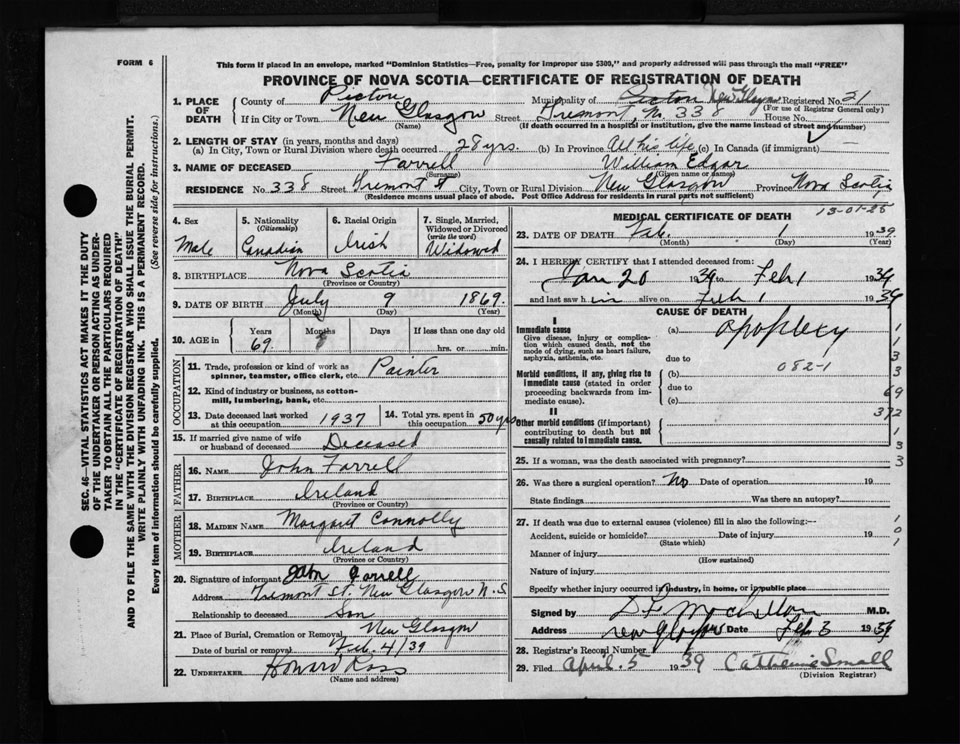 FORM 6
This form if placed in an envelope, marked "Dominion Statistics—Free, penalty for improper use $300," and properly addressed will pass through the mail "FREE"
PROVINCE OF NOVA SCOTIA—CERTIFICATE OF REGISTRATION OF DEATH
SEC. 46—VITAL STATISTICS ACT MAKES IT THE DUTY
OF THE UNDERTAKER OR PERSON ACTING AS UNDER-
TAKER TO OBTAIN ALL THE PARTICULARS REQUIRED
IN THE "CERTIFICATE OF REGISTRATION OF DEATH"
AND TO FILE THE SAME WITH THE DIVISION REGISTRAR WHO SHALL ISSUE THE BURIAL PERMIT.
WRITE PLAINLY WITH UNFADING INK. THIS IS A PERMANENT RECORD.
Every item of information should be carefully supplied. (See reverse side for instructions.)
1. PLACE OF DEATH County of Pictou Municipality of Pictou New Glasgow Registered No. 21
(For use of Registrar General only)
If in City or Town New Glasgow Street Tremont, No. 338 House No.
(Name) (If death occurred in a hospital or institution, give the name instead of street and number)
2. LENGTH OF STAY (in years, months and days)
(a) In City, Town or Rural Division where death occurred 28 yrs. (b) In Province All his life (c) In Canada (if immigrant) —
3. NAME OF DECEASED Farrell William Edgar
(Surname) (Given name or names)
RESIDENCE No. 338 Street Tremont St City, Town or Rural Division New Glasgow Province Nova Scotia
(Residence means usual place of abode. Post Office Address for residents in rural parts not sufficient)
4. Sex Male
5. Nationality (Citizenship) Canadian
6. Racial Origin Irish
7. Single, Married, Widowed or Divorced (write the word) Widowed
8. BIRTHPLACE Nova Scotia
(Province or Country)
9. DATE OF BIRTH July 9 1869.
(Month) (Day) (Year)
10. AGE in Years 69 Months Days If less than one day old
hrs. or min.
OCCUPATION
11. Trade, profession or kind of work as spinner, teamster, office clerk, etc. Painter
12. Kind of industry or business, as cotton-mill, lumbering, bank, etc.
13. Date deceased last worked at this occupation 1937
14. Total yrs. spent in this occupation 50 yrs
15. If married give name of wife or husband of deceased Deceased
FATHER
16. NAME John Farrell
17. BIRTHPLACE Ireland
(Province or Country)
MOTHER
18. MAIDEN NAME Margaret Connolly
19. BIRTHPLACE Ireland
(Province or Country)
20. Signature of informant John Farrell
Address Tremont St. New Glasgow N.S.
Relationship to deceased Son
21. Place of Burial, Cremation or Removal New Glasgow
Date of burial or removal Feb. 4/39
22. UNDERTAKER Howard Ross
(Name and address)
MEDICAL CERTIFICATE OF DEATH
13-01-25
23. DATE OF DEATH Feb. 1 1939.
(Month) (Day) (Year)
24. I HEREBY CERTIFY that I attended deceased from:
Jan 20 1939 to Feb 1 1939
and last saw him alive on Feb 1 1939
CAUSE OF DEATH
I
Immediate cause (a) apoplexy
Give disease, injury or complica-
tion which caused death, not the
mode of dying, such as heart failure,
asphyxia, asthenia, etc.
due to
082-1
Morbid conditions, if any, giving rise to (b)
immediate cause (stated in order due to
proceeding backwards from im-
mediate cause). (c)
II
Other morbid conditions (if important)
contributing to death but not
causally related to immediate cause.
1
1
3
3
69
372
1
3
3
25. If a woman, was the death associated with pregnancy?
26. Was there a surgical operation? No Date of operation 19
State findings Was there an autopsy?
27. If death was due to external causes (violence) fill in also the following:—
Accident, suicide or homicide? Date of injury 19
(State which)
Manner of injury
(How sustained)
Nature of injury
Specify whether injury occurred in industry, in home, or in public place
1
0
1
Signed by M.D.
Address New Glasgow Date Feb 3 1939
28. Registrar's Record Number
29. Filed April 5 1939 Catherine Small
(Division Registrar)